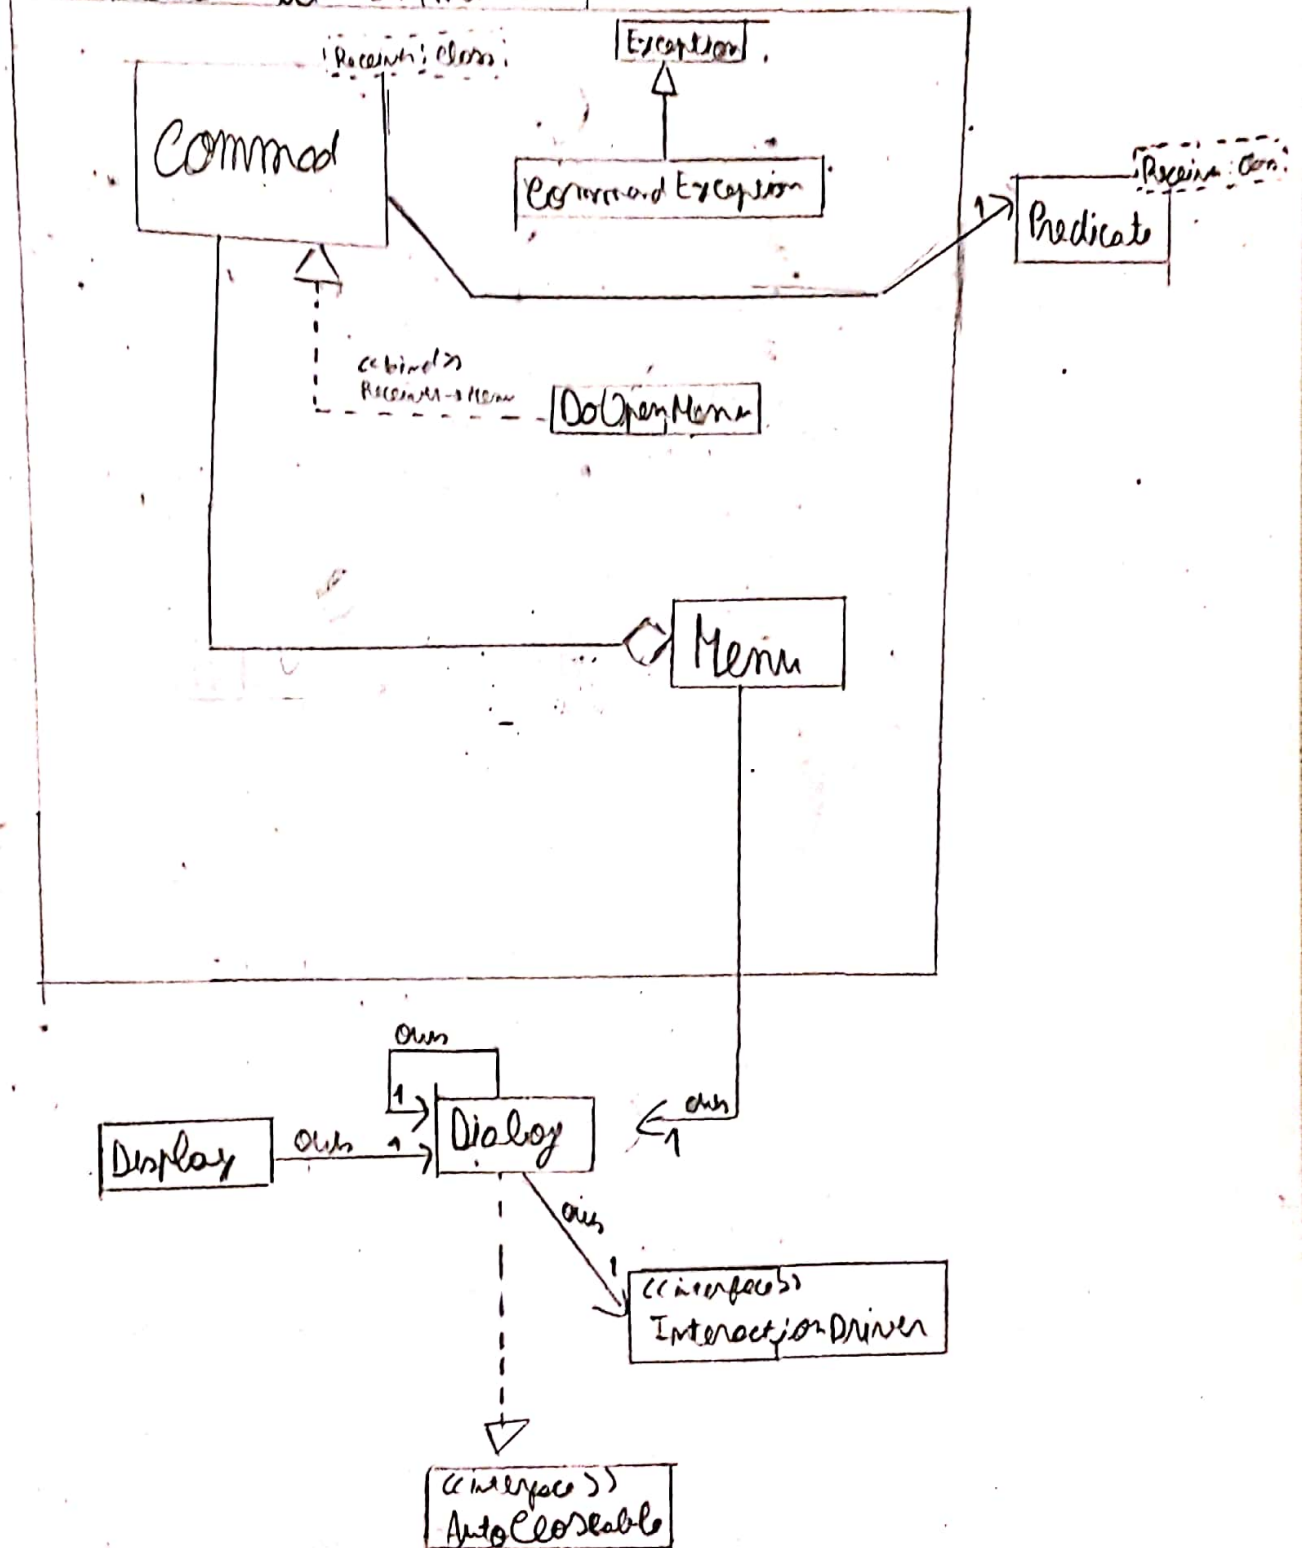 Receiver: Class
Exception
Command
CommandException
Receiver: Class
1
Predicate
<<bind>>
Receiver->Menu
DoOpenMenu
Menu
owns
1
owns
1
Display
owns
1
Dialog
owns
1
<<interface>>
InteractionDriver
<<interface>>
AutoCloseable